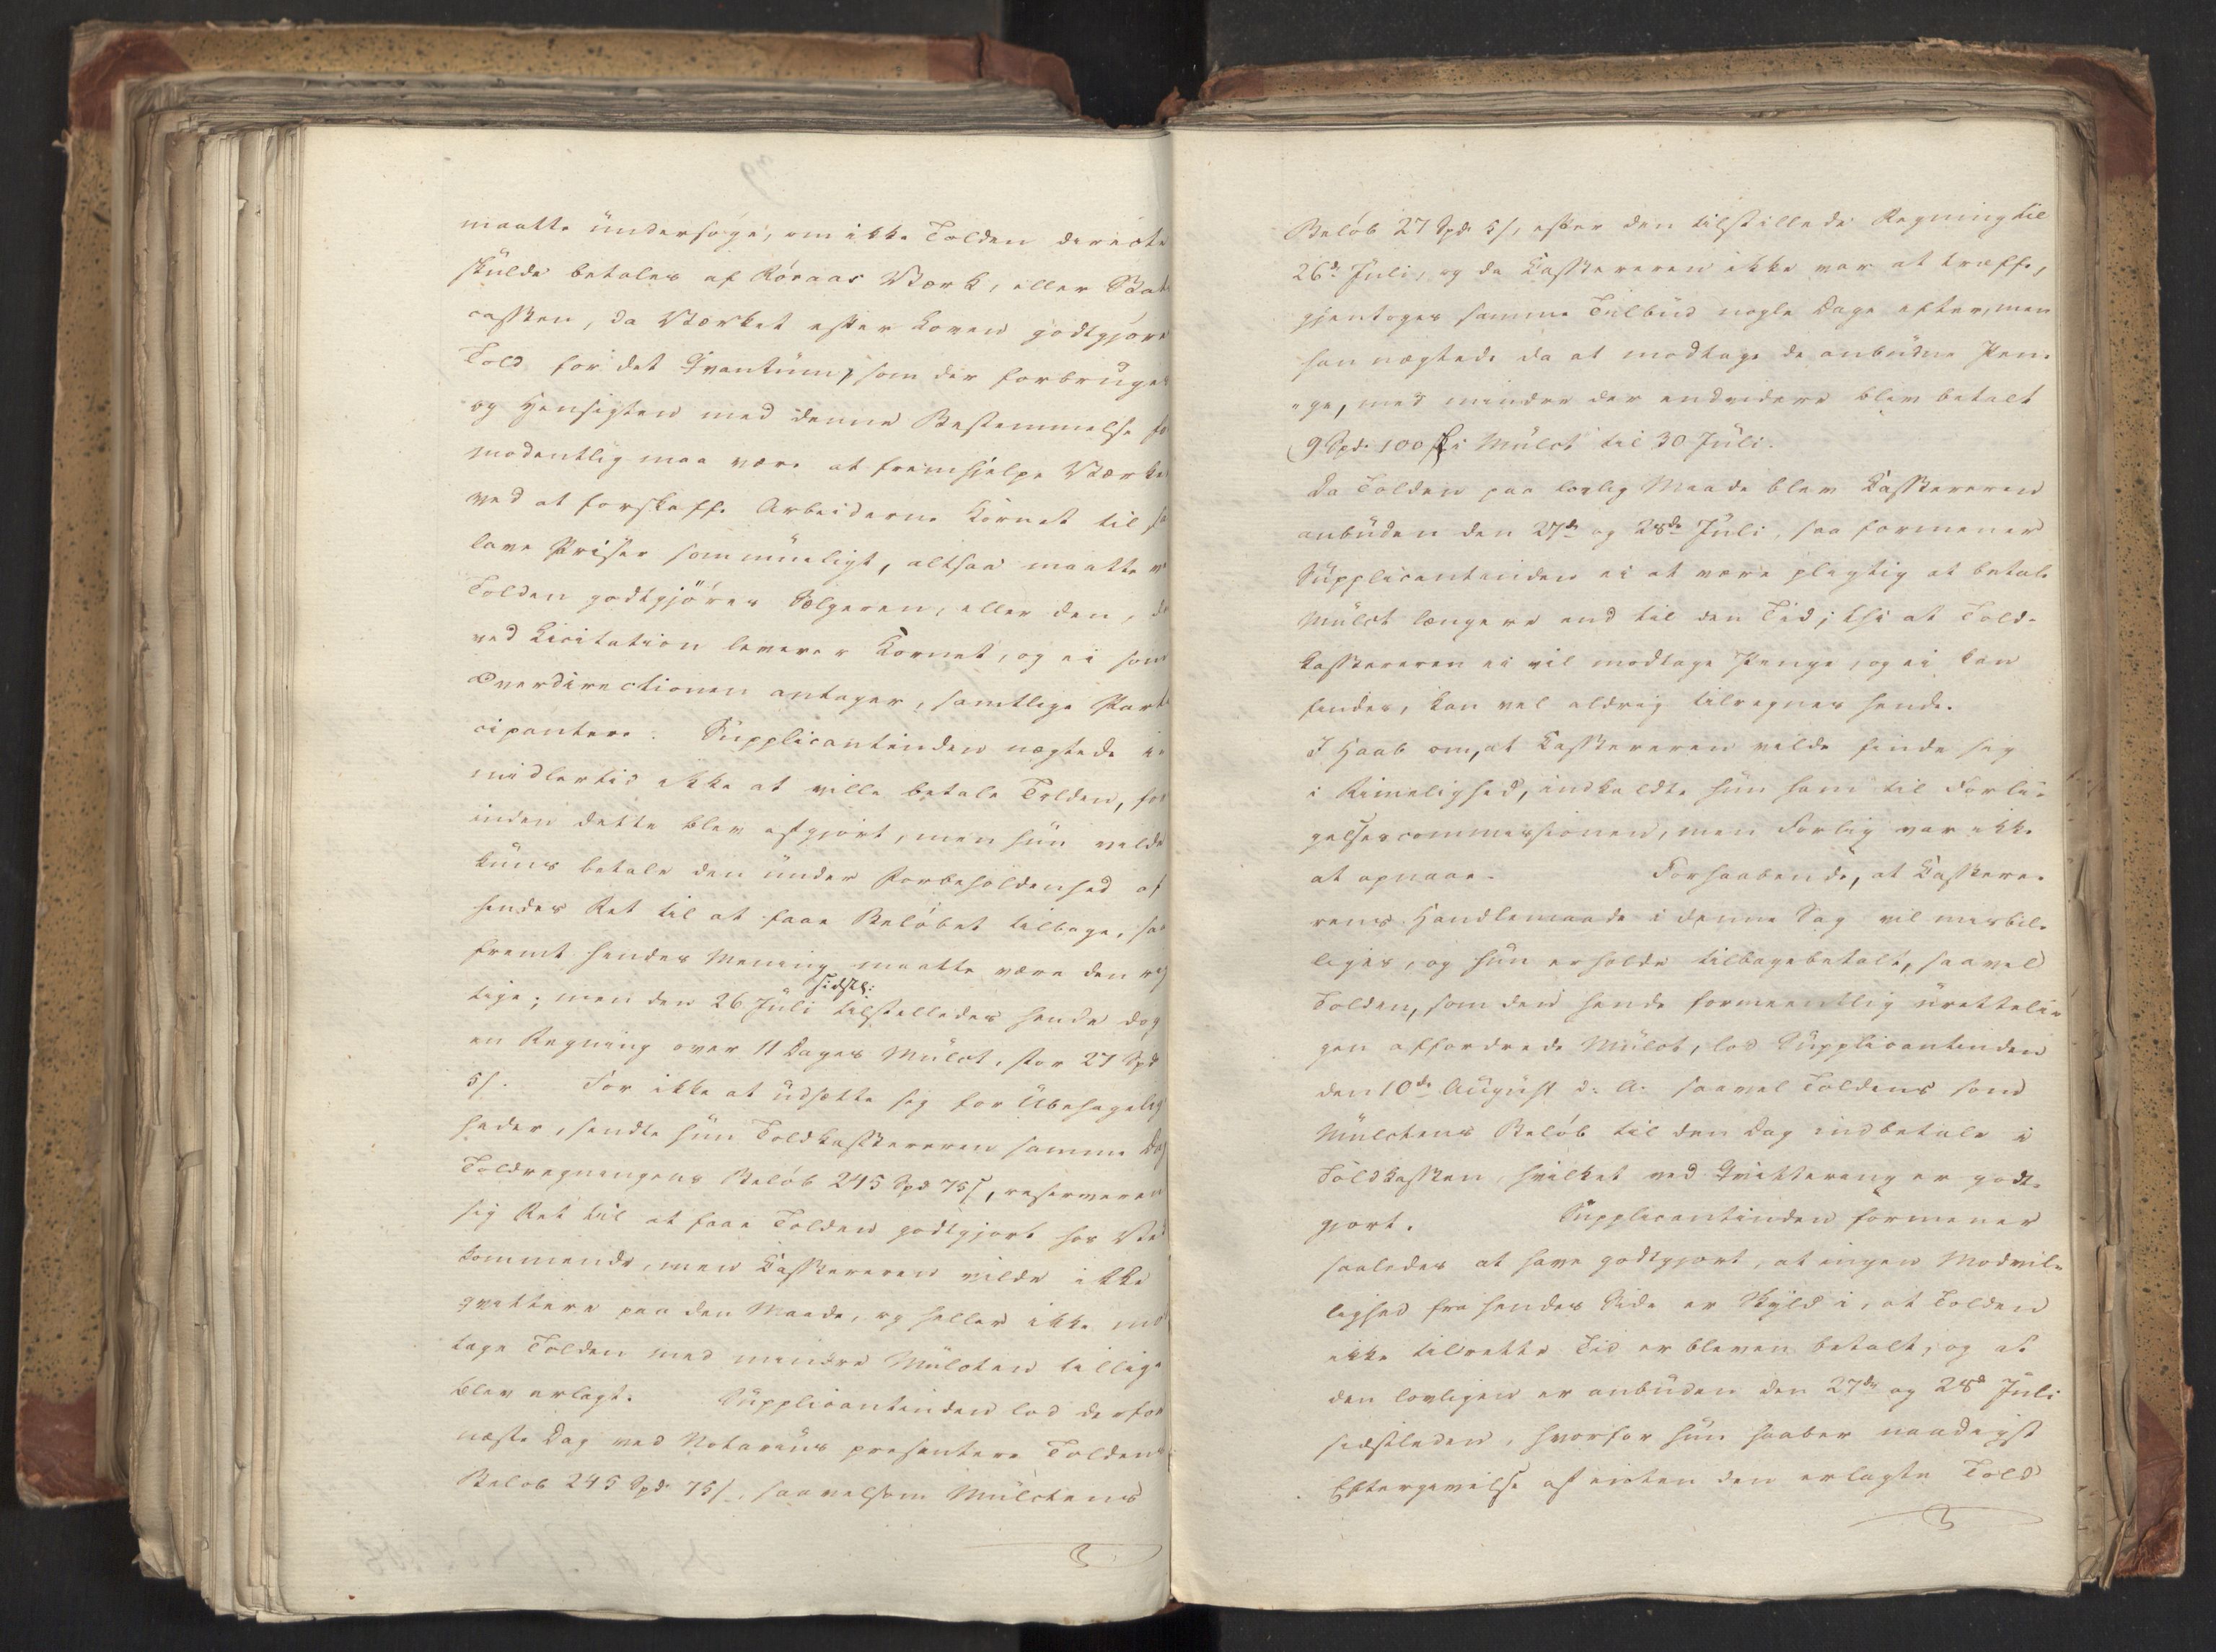 maatte undersøge, om ikke Tolden directe
skulde betales af Röraas Værk, eller Stats
cassken, da Værket efter Loven godtgjøres
Told for det Qvantum, som der forbruges
og Hensigten med denne Bestemmelse for
modentlig maa være at fremhjelpe Værket
ved at forskaffe Arbeiderne Kornet til saa
lave Priser som mueligt, altsaa maatte vel
Tolden godtgjöres Sælgeren, eller den, der
ved Licitation leverer Kornet, og ei som
Overdirectionen antager, samtlige Parti
cipantere. Supplicantinden nægtede i
midlertid ikke at ville betale Tolden, for
inden dette blev afgjort, men hun vilde
kuns betale den under Forbeholdenhed af
hendes Ret til at faae Belöbet tilbage, saa
fremt hendes Mening maatte være den rig
tige; men den 26 Juli sidstl: tilstilledes hende dog
en Regning over 11 Dages Mulct, stor 27 Spd
5 s. For ikke at udsætte sig for Ubehagelig
heder, sendte hun Toldkasskereren samme Dag
Toldregningens Belöb 245 Spd 75 s, reserveren
sig Ret til at faae Tolden godtgjort hos Ved
kommende, men Kasskereren vilde ikke
qvittere paa den Maade, og heller ikke mod
tage Tolden med mindre Mulcten tillige
blev erlagt. Supplicantinden lod derfor
næste Dag ved Notarius presentere Toldens
Belöb 245 Spd. 75 s., saavelsom Mulctens
Belöb 27 Spd. 5 s, efter den tilstillede Regning til
26de Juli, og da Kasskereren ikke var at træffe,
gjentoges samme Tilbud nogle Dage efter, men
han nægtede da at modtage de anbudne Pen-
ge, med mindre der endvidere blev betalt
9 Spd. 100 s i Mulct til 30 Juli.
Da Tolden paa lovlig Maade blev Kasskereren
anbuden den 27de og 28de Juli, saa formener
Supplicantinden ei at være pligtig at betale
Mulct længere end til den Tid; thi at Told-
kasskereren ei vil modtage Penge, og ei kan
findes, kan vel aldrig tilregnes hende.
I Haab om, at Kasskereren vilde finde sig
i Rimelighed, indkaldte hun ham til Forli-
gelsescommissionen, men Forlig var ikke
at opnaae. Forhaabende, at Kasskere-
rens Handlemaade i denne Sag vil misbil-
liges, og hun erholde tilbagebetalt, saavel
Tolden, som den hende formeentlig uretteli-
gen affordrede Mulct, lod Supplicantinden
den 10de August d. A. saavel Toldens som
Mulctens Belöb til den Dag indbetale i
Toldkassken, hvilket ved Qvittering er godt-
gjort. Supplicantinden formener
saaledes at have godtgjort, at ingen Modvil-
lighed fra hendes Side er Skyld i, at Tolden
ikke til rette Tid er bleven betalt, og at
den lovligen er anbuden den 27de og 28de Juli
sidstleden, hvorfor hun haaber naadigst
Eftergivelse af enten den erlagte Told